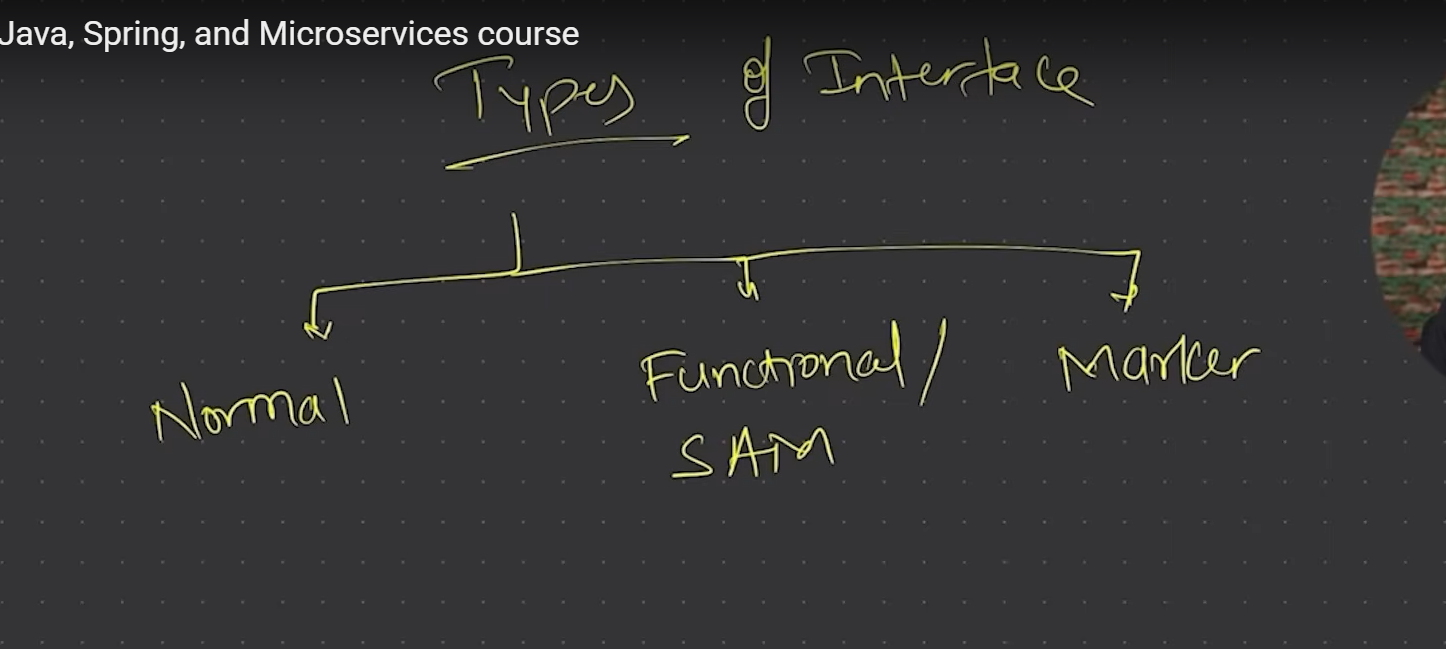 Java, Spring, and Microservices course
Types of Interface
Normal
Functional/
SAM
Marker